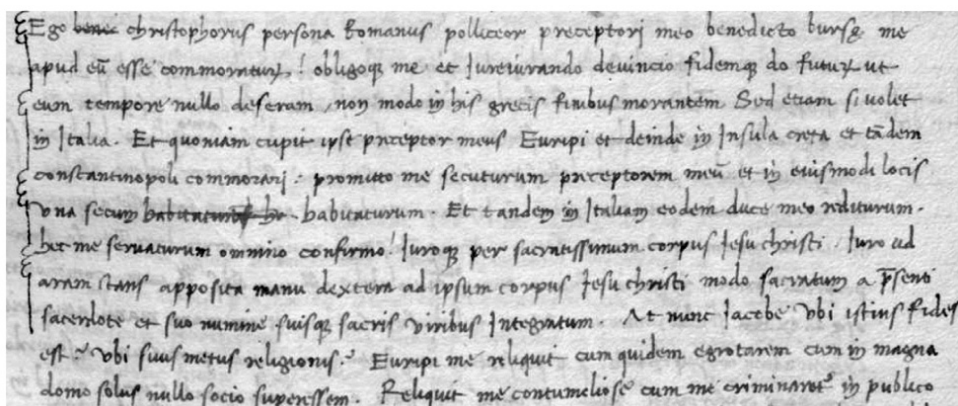 Ego benei christophorus persona Romanus polliceor preceptorj meo benedicto bursę me
apud eū esse commoraturꝝ ! obligoqꝫ me et Iureiurando devincio fidemqꝫ do futurꝝ ut
eum tempore nullo deseram, non modo in his grecis finibus morantem Sed etiam si volet
in Italia. Et quoniam cupit ipse preceptor meus Euripi et deinde in Insula creta et tādem
constantinopoli commorarj : promitto me secuturum preceptorem meū et in eiusmodi locis
vna secum habitaturum. Et tandem in Italiam eodem duce meo rediturum.
hec me servaturum omnino confirmo! Iuroqꝫ per sacratissimum corpus Jesu christi. Iuro ad
aram stans apposita manu dextera ad ipsum corpus Jesu christi modo sacratum a p̄senti
sacerdote et suo numine suisqꝫ sacris viribus Integratum. At nunc Iacobe vbi istius fides
est? vbi suus metus religionis? Euripi me reliquit cum quidem egrotarem cum in magna
domo solus nullo socio superessem. Reliquit me contumeliose cum me criminaretᵉ in publico